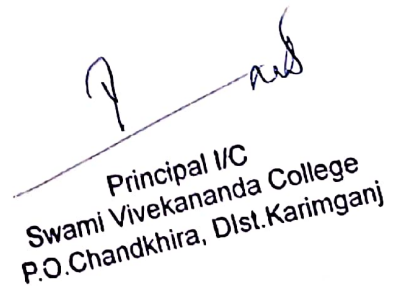 Principal I/C
Swami Vivekananda College
P.O.Chandkhira, DIst.Karimganj